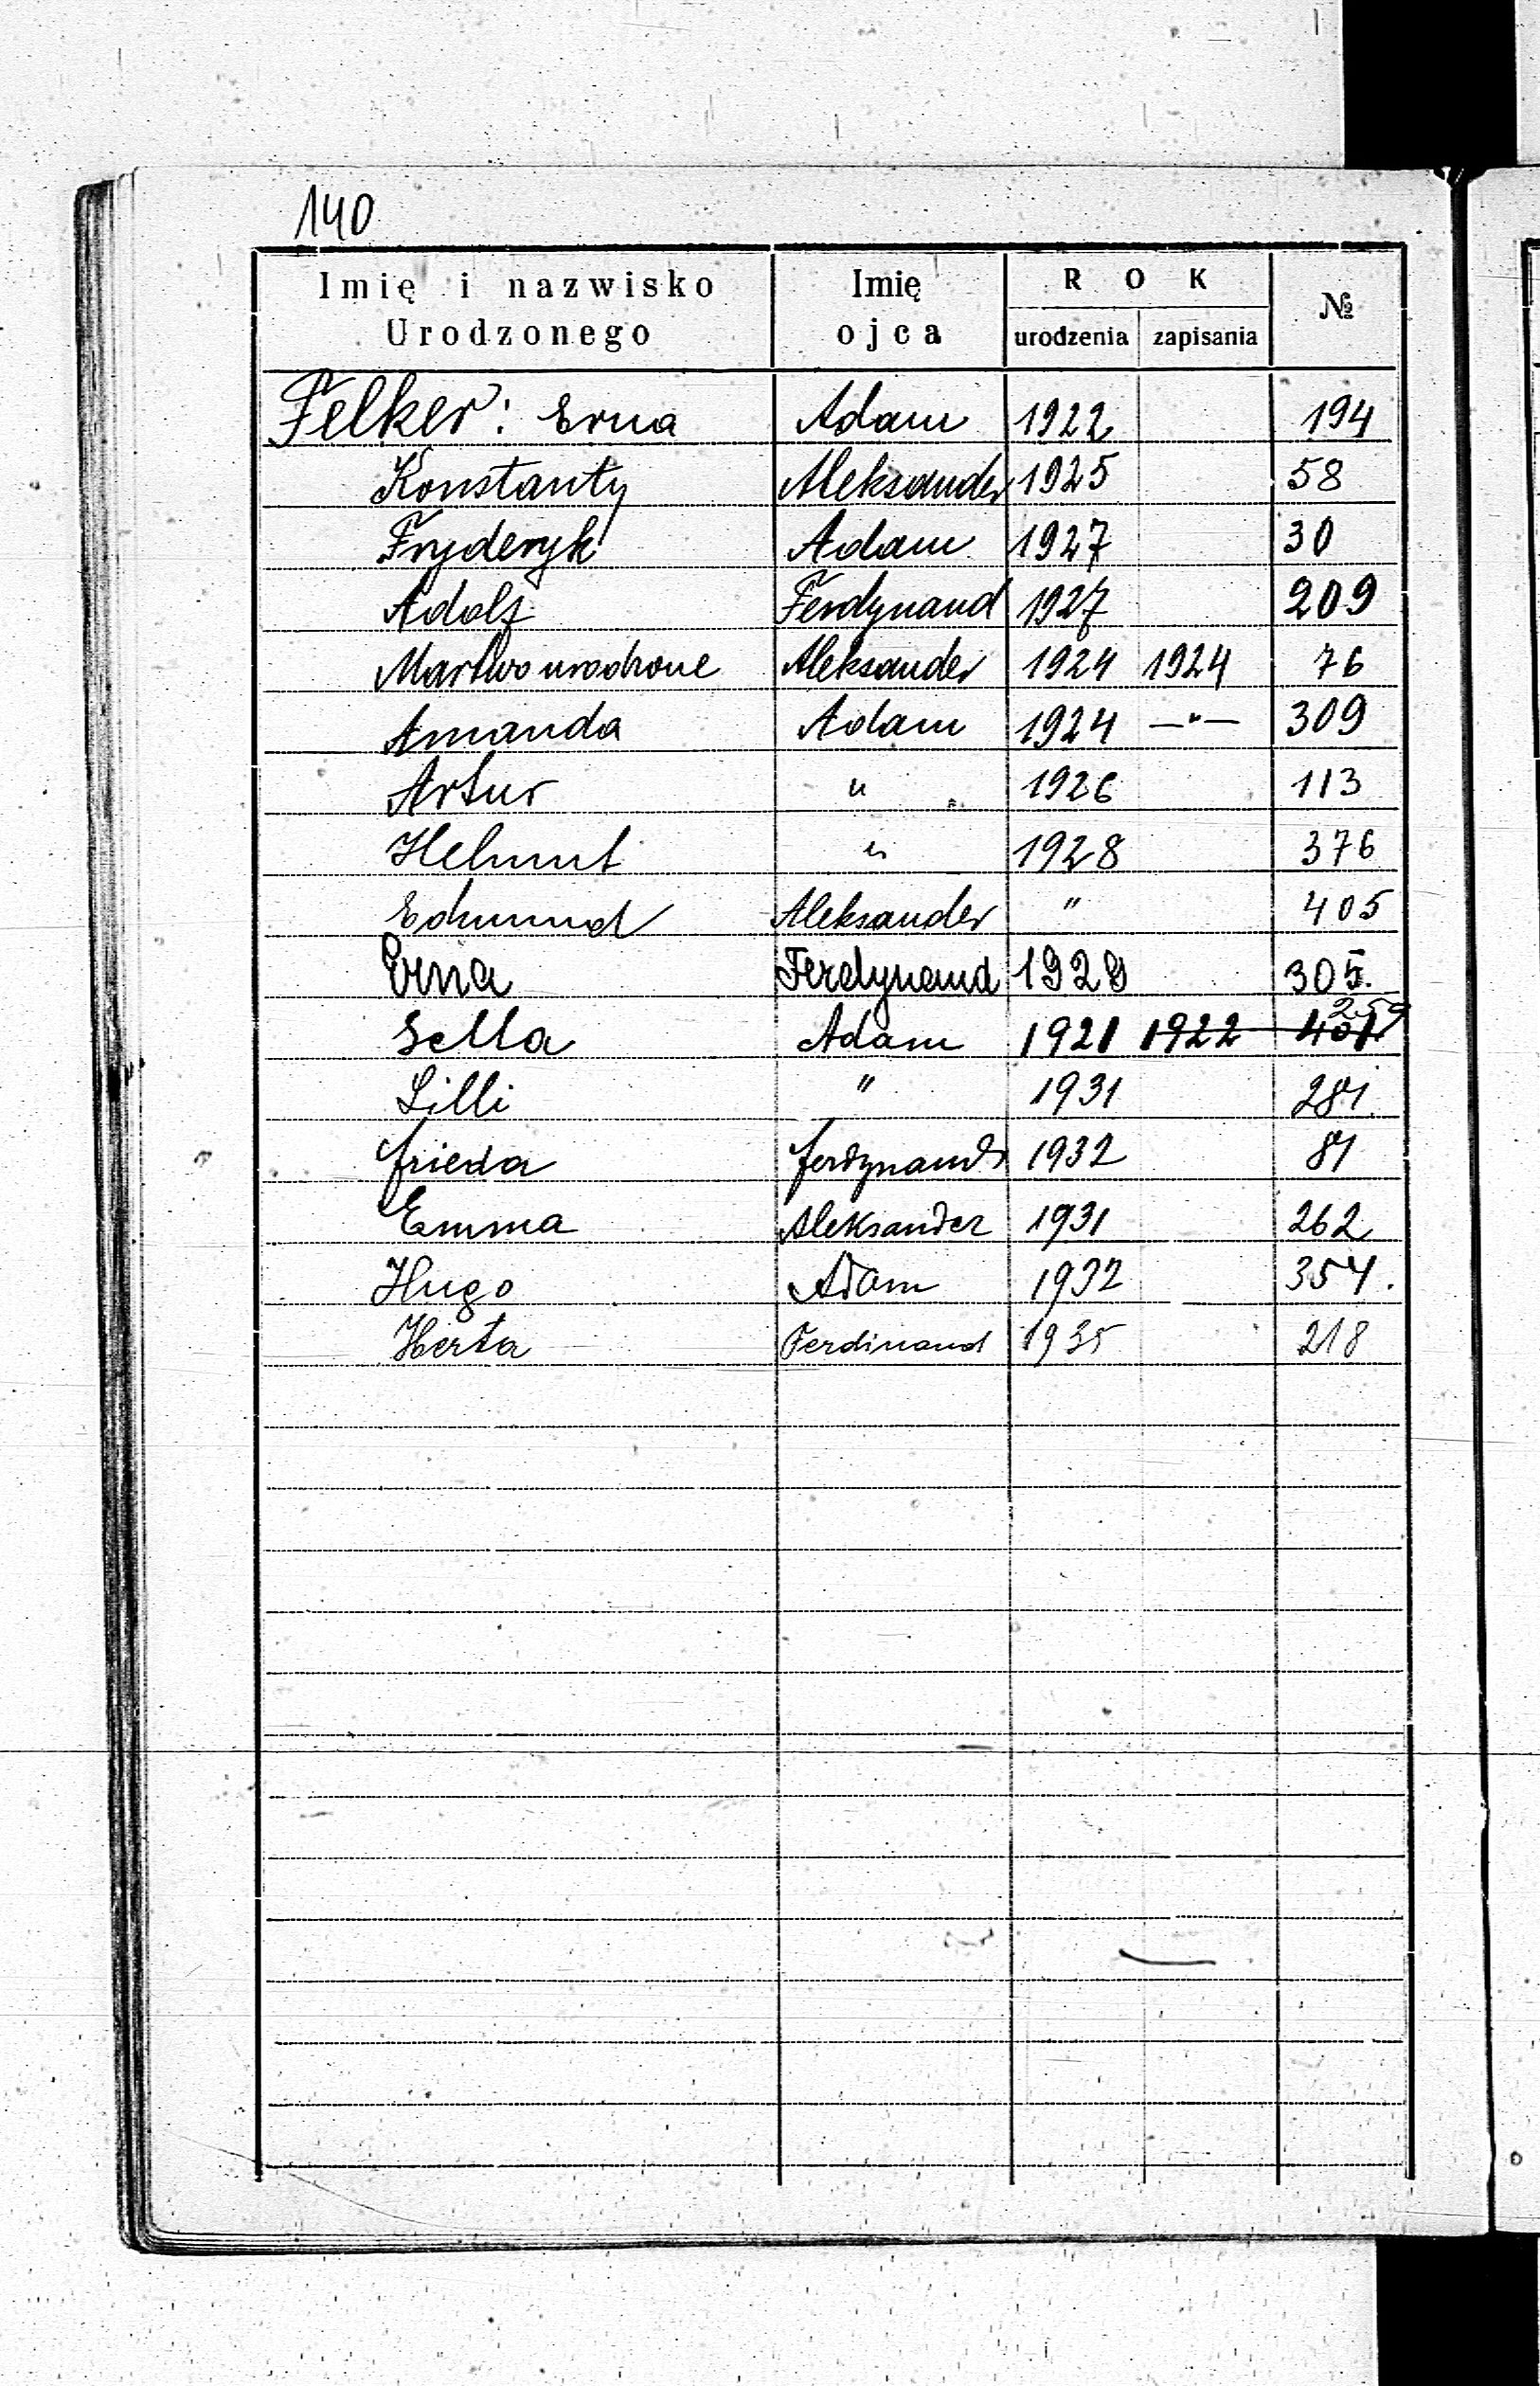 140
Imię i nazwisko Urodzonego Imię ojca ROK urodzenia zapisania №
Felker: Erna Adam 1922 194
Konstanty Aleksander 1925 58
Fryderyk Adam 1927 30
Adolf Ferdynand 1927 209
Martwo urodzone Aleksander 1924 1924 76
Amanda Adam 1924 —"— 309
Artur " 1926 113
Helmut " 1928 376
Edmund Aleksander " 405
Erna Ferdynand 1929 305.
Sella Adam 1921 1922 401 259
Lilli " 1931 281.
Frieda Ferdynand 1932 81
Emma Aleksander 1931 262
Hugo Adam 1932 354.
Herta Ferdinand 1935 218